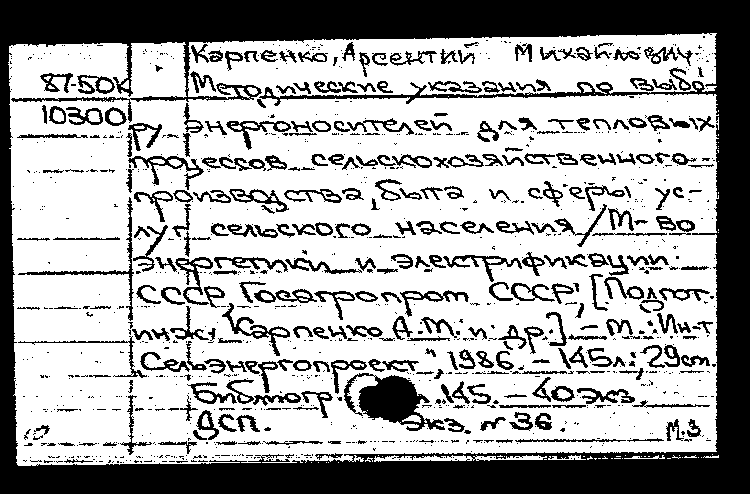 Карпенко, Арсентий Михайлович.
87-50к Методические указания по выбо-
10300 ру энергоносителей для тепловых
процессов сельскохозяйственного
производства, быта и сферы ус-
луг сельского населения / М-во
энергетики и электрификации
СССР, Госагропром СССР; [Подгот.
инж. Карпенко А.М. и др.] - М.: Ин-т
"Сельэнергопроект", 1986. - 145л.; 29см.
Библиогр. л. 145. - 40 экз.
ДСП. Экз. № 36. М.З